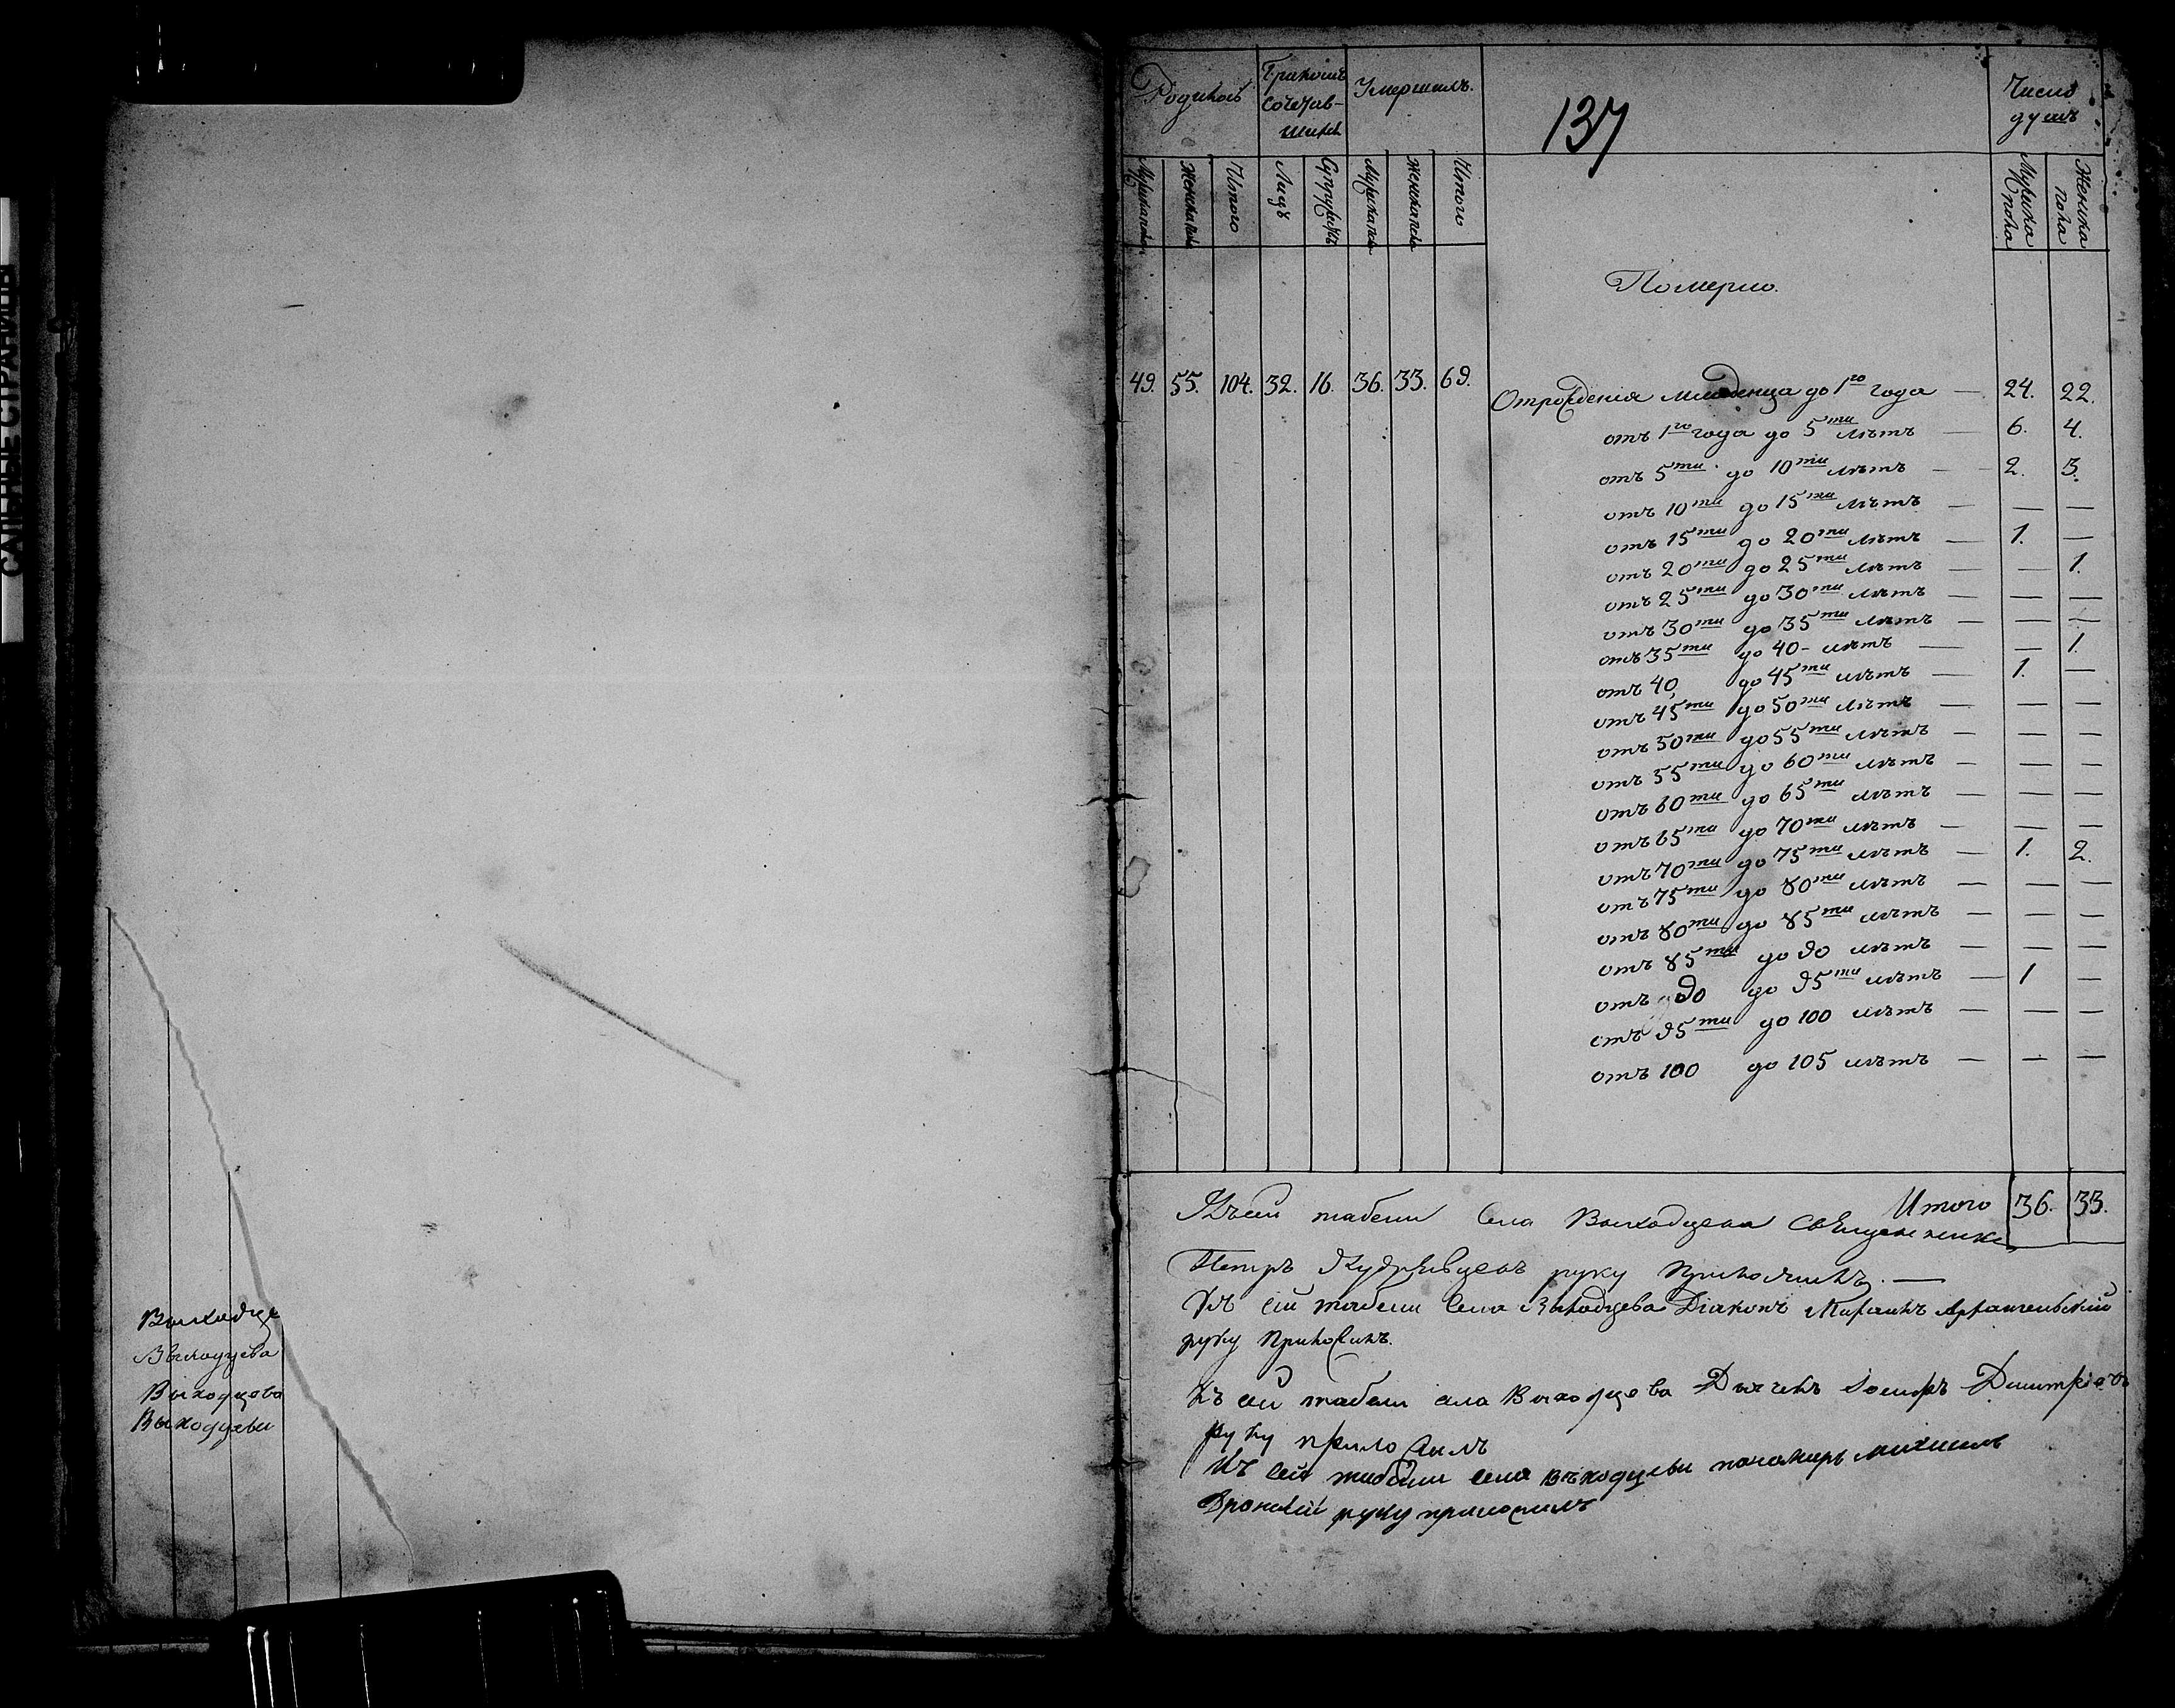 СЛЕПЫЕ СТРАНИЦЫ
Выходце
Выходцева
Выходцева
Выходцевы
Родилось
Бракомъ
сочетав-
шихся
Умершихъ.
137
Число
душъ
Мужска
Женска
Итого
Лицъ
Супружествъ
Мужска
Женска
Итого
Мужска
пола
Женска
пола
Померло.
49. 55. 104. 32. 16. 36. 33. 69.
Отрожденія младенца до 1го года — 24. 22.
отъ 1го года до 5ти лѣтъ — 6. 4.
отъ 5ти до 10ти лѣтъ — 2. 3.
отъ 10ти до 15ти лѣтъ — — —
отъ 15ти до 20ти лѣтъ — 1. —
отъ 20ти до 25ти лѣтъ — — 1.
отъ 25ти до 30ти лѣтъ — — —
отъ 30ти до 35ти лѣтъ — — —
отъ 35ти до 40 - лѣтъ — — 1.
отъ 40 до 45ти лѣтъ — 1. —
отъ 45ти до 50ти лѣтъ — — —
отъ 50ти до 55ти лѣтъ — — —
отъ 55ти до 60ти лѣтъ — — —
отъ 60ти до 65ти лѣтъ — — —
отъ 65ти до 70ти лѣтъ — — —
отъ 70ти до 75ти лѣтъ — 1. 2.
отъ 75ти до 80ти лѣтъ — — —
отъ 80ти до 85ти лѣтъ — — —
отъ 85ти до 90 лѣтъ — — —
отъ 90 до 95ти лѣтъ — 1 —
отъ 95ти до 100 лѣтъ — — —
отъ 100 до 105 лѣтъ — — —
Итого 36. 33.
Къ сей табели села Выходцева Священникъ
Петръ Кудрявцевъ руку приложилъ. —
Къ сей табели села Выходцева Діаконъ Архангельский
руку приложилъ.
Къ сей табели села Выходцева Дьячекъ Іосифъ Димитріевъ
руку приложилъ
Къ сей табели села выходцевы пономарь михаилъ
руку приложилъ